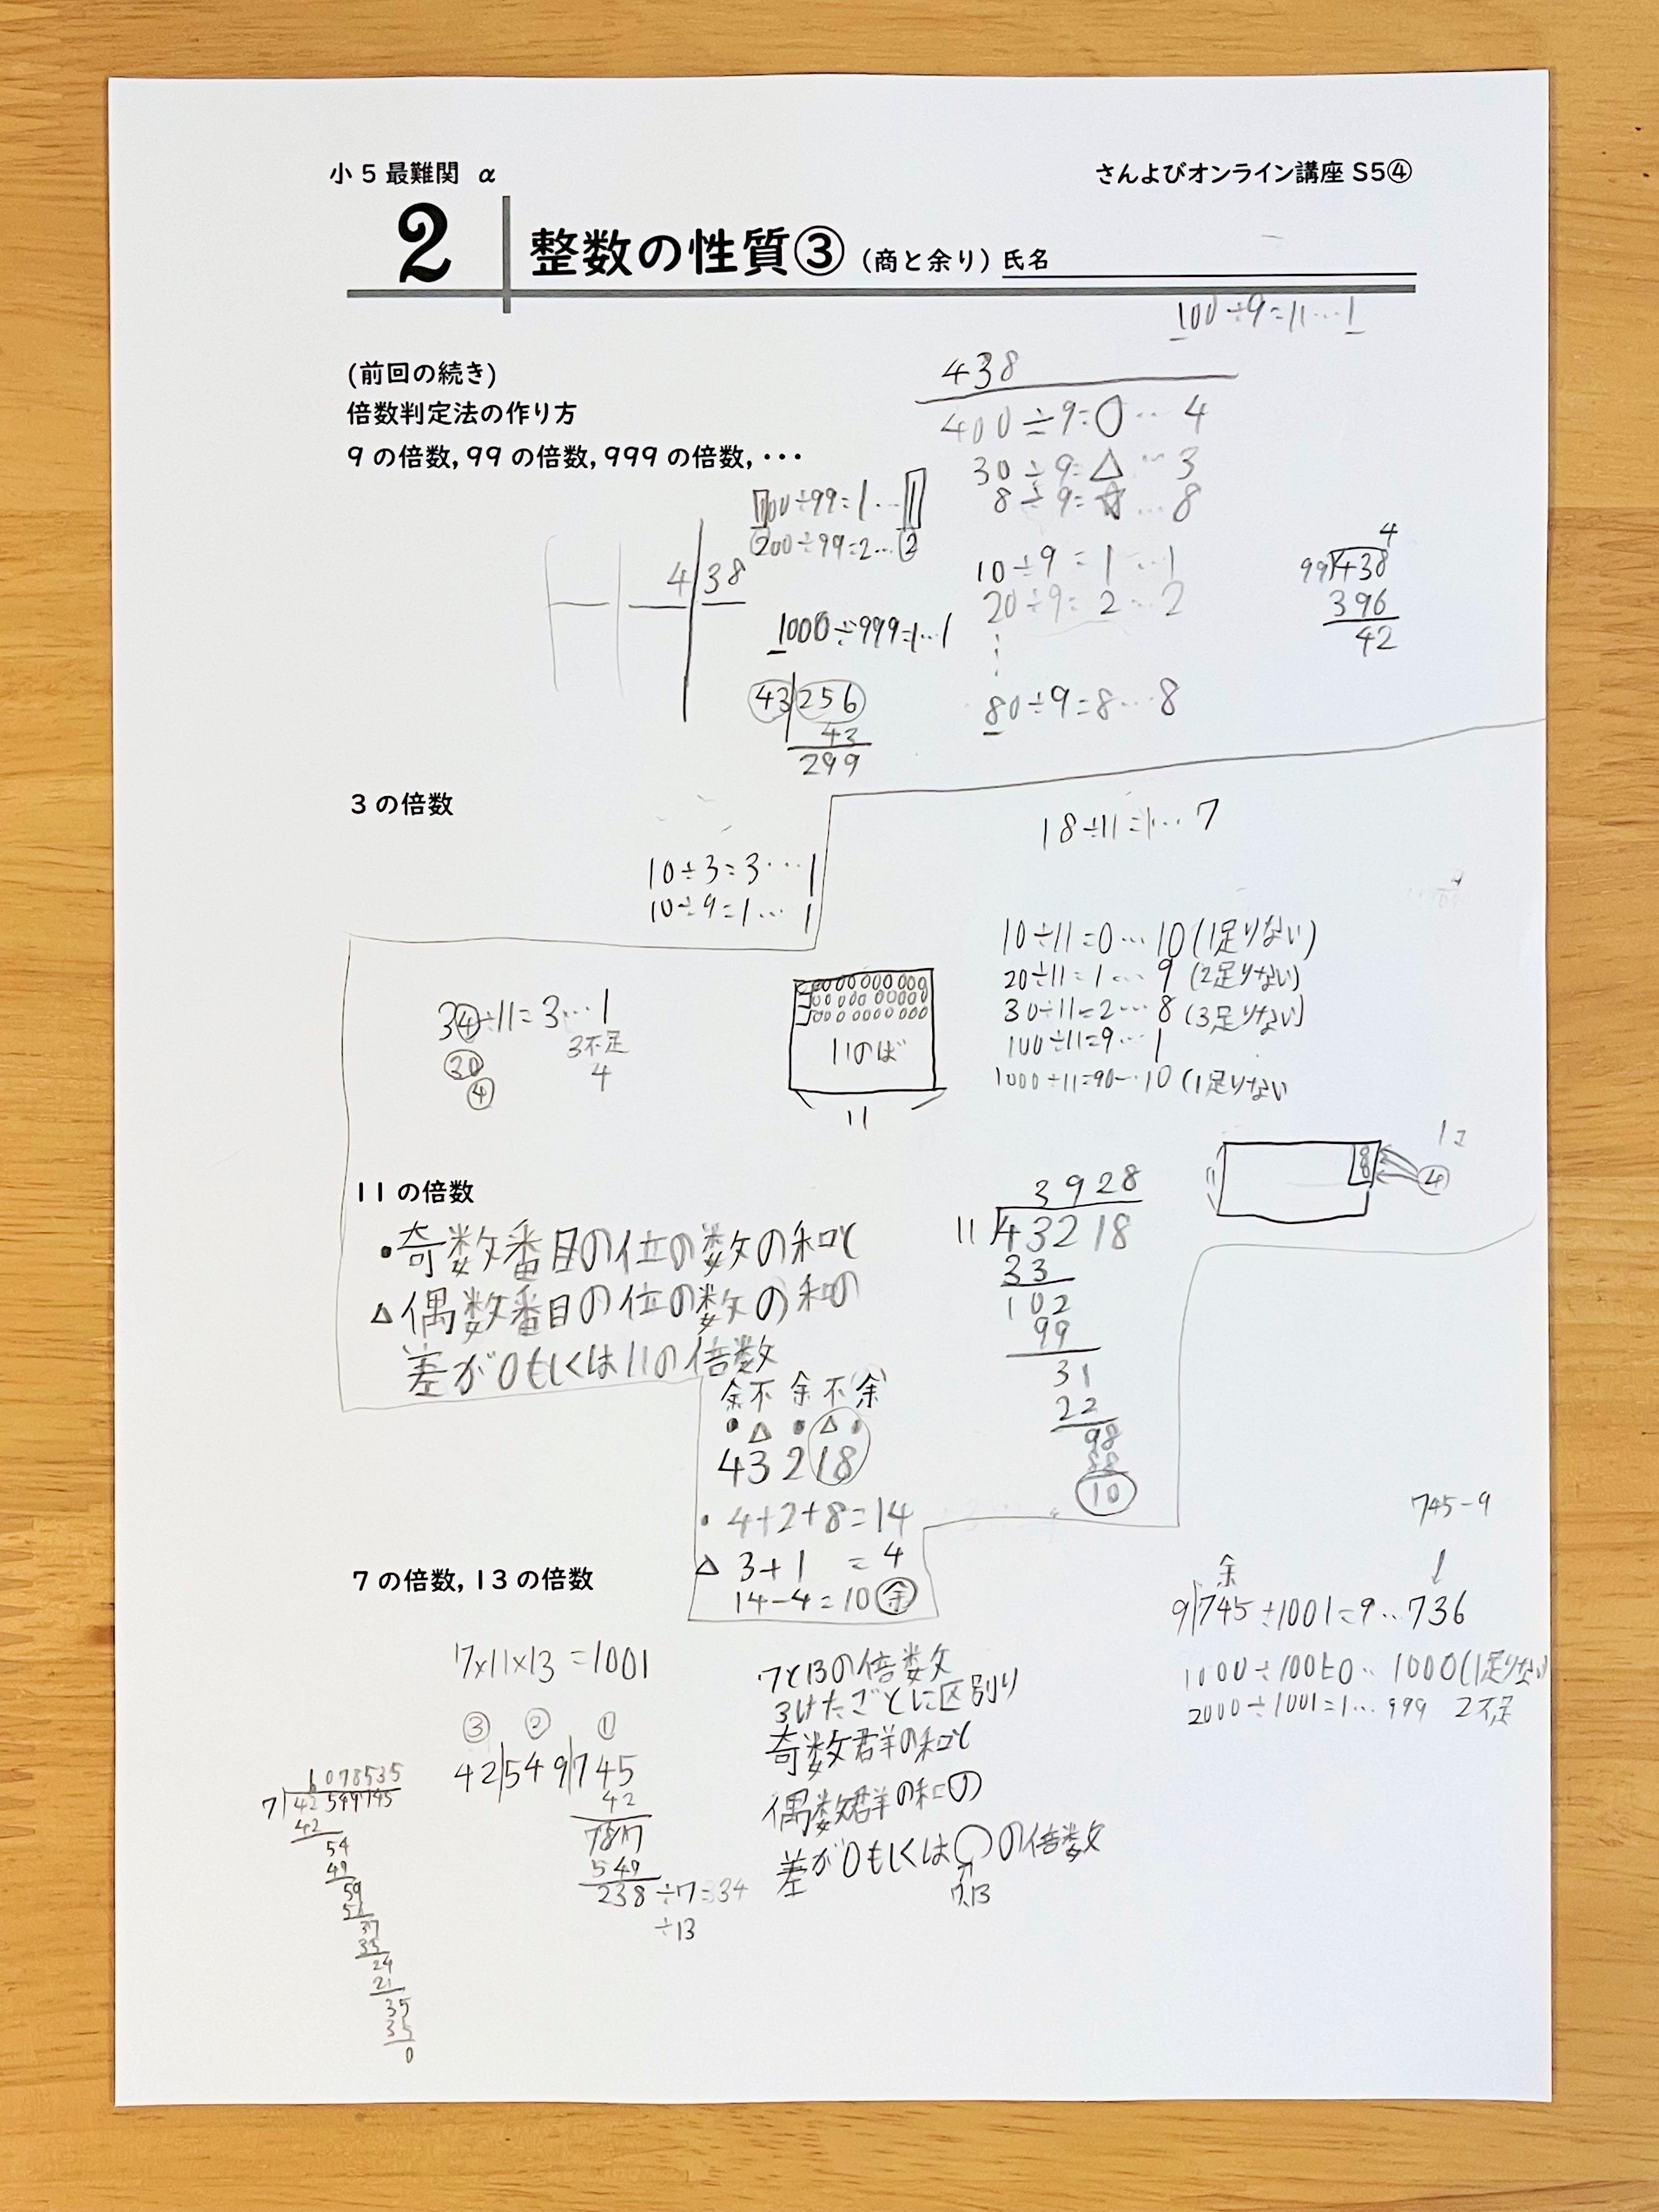 小5最難関 α
さんよびオンライン講座 S5④
2
整数の性質③(商と余り) 氏名
100÷9=11…1
(前回の続き)
倍数判定法の作り方
9の倍数,99の倍数,999の倍数,・・・
438
400÷9=○…4
30÷9=△…3
8÷9=☆…8
100÷99=1…1
200÷99=2…2
4|38
10÷9=1…1
20÷9=2…2
⋮
80÷9=8…8
4
99)438
396
42
1000÷999=1…1
43|256
43
299
3の倍数
10÷3=3…1
10÷9=1…1
18÷11=1…7
10÷11=0…10(1足りない)
20÷11=1…9(2足りない)
30÷11=2…8(3足りない)
100÷11=9…1
1000÷11=90…10(1足りない
34÷11=3…1
3不足
30
4
4
11のば
11
11の倍数
•奇数番目の位の数の和と
△偶数番目の位の数の和の
差が0もしくは11の倍数
3928
11)43218
33
102
99
31
22
98
88
10
4
余不余不余
•△•△•
43218
•4+2+8=14
△3+1=4
14-4=10余
7の倍数,13の倍数
7×11×13=1001
③ ② ①
42|549|745
42
787
549
238÷7=34
÷13
6078535
7)42549745
42
54
49
59
56
37
35
24
21
35
35
0
7と13の倍数
3けたごとに区別り
奇数群の和と
偶数群の和の
差が0もしくは○の倍数
7,13
745-9
余
↓
9|745÷1001=9…736
1000÷1001=0…1000(1足りない
2000÷1001=1…999 2不足